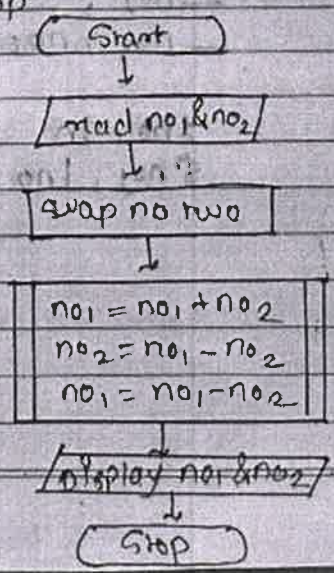 Start
read no1 & no2
swap no two
no1 = no1 + no2
no2 = no1 - no2
no1 = no1 - no2
Display no1 & no2
Stop